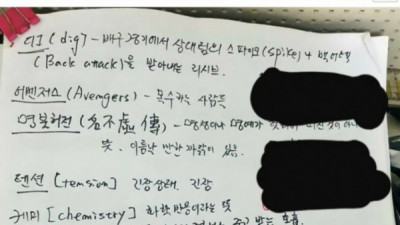 디그(dig) - 배구경기에서 상대팀의 스파이크(spike)나 백어택
(Back attack)을 받아내는 리시브.
어벤저스(Avengers) - 복수하는 사람들
명불허전(名不虛傳) - 명성이나 명예가 퍼진 것이 아니
뜻. 이름날 만한 까닭이 있음.
텐션[tension] 긴장상태, 긴장
케미[chemistry] 화학반응이라는 뜻